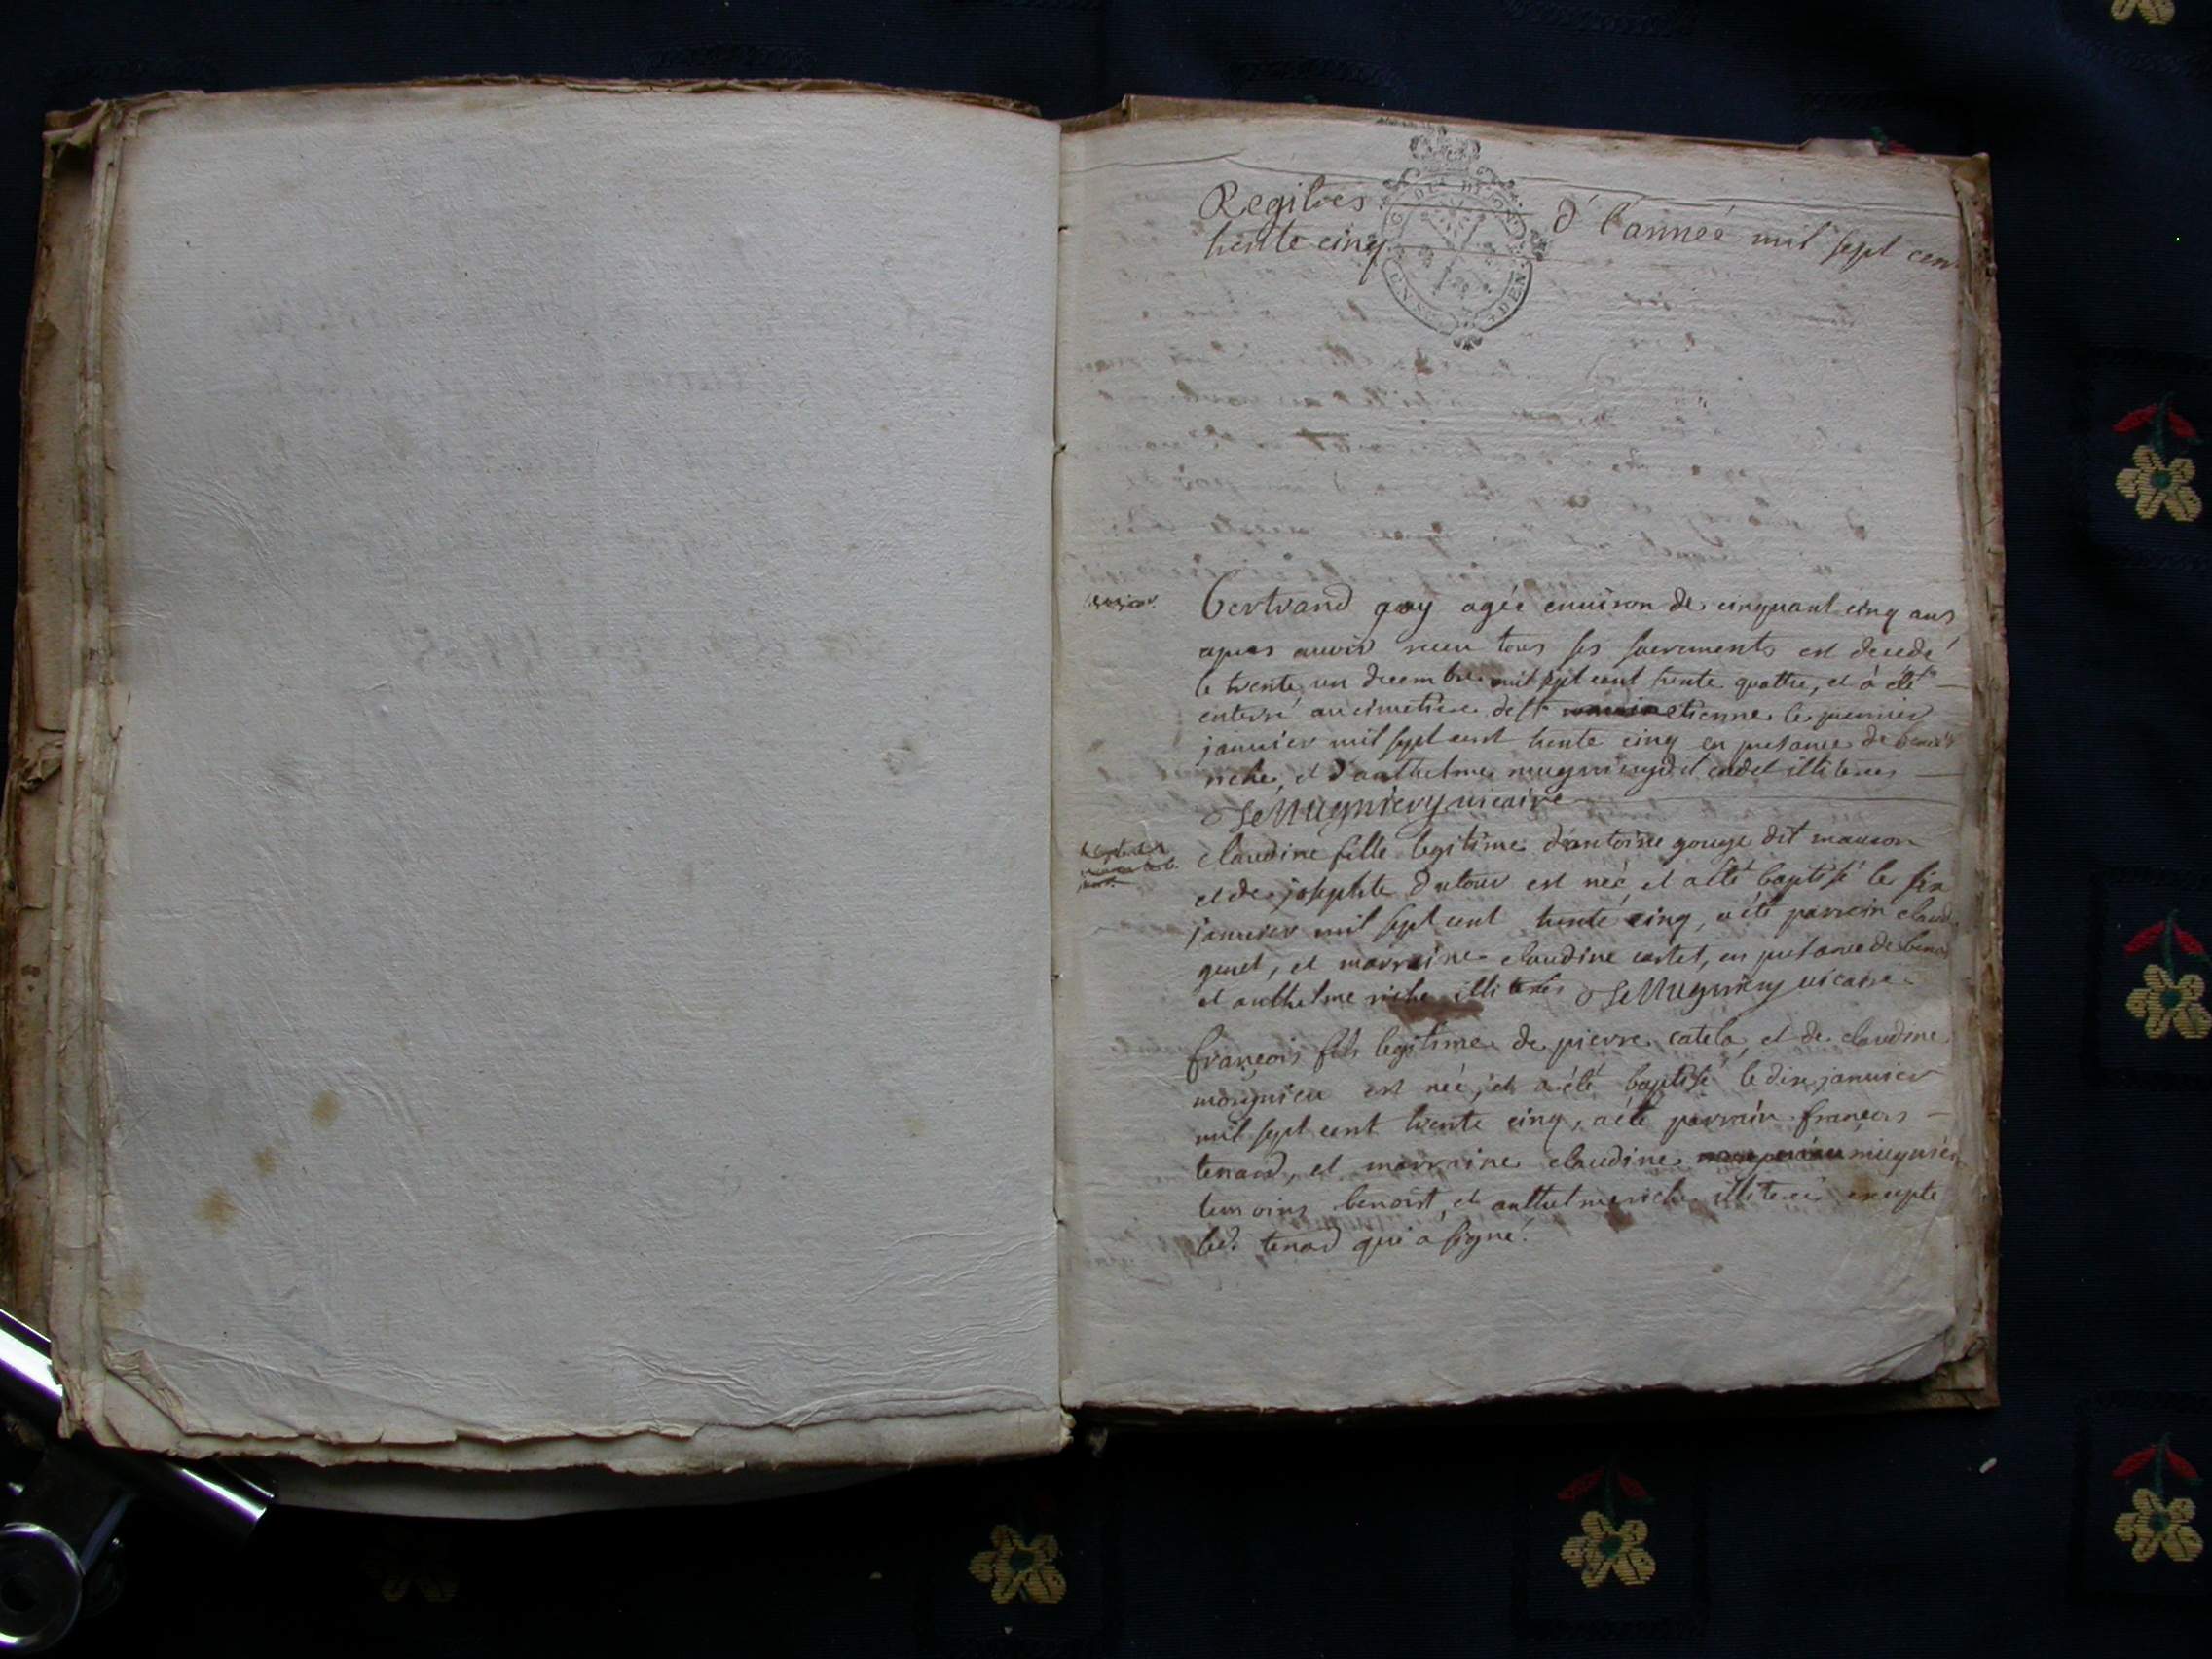 Registres d'l'année mil sept cen
trente cinq
G DET DE
DEN
janvier
bertrand gay agée environ de cinquant cinq ans
apres avoir receu tous ses sacrements est decedé
le trente un decembre mil sept cent trente quattre, et à été
enterré au cimetiere de st etienne le premier
janvier mil sept cent trente cinq en presance de benoit
riche, et d'anthelme mugnier dit cadet illiteres
Mugniery vicaire
claudine fille legitime d'antoine gouge dit manson
et de josephte dutour est neé, et a été baptisé le six
janvier mil sept cent trente cinq, a été parrein claud
genet, et marraine claudine cartet, en presance de benoit
et anthelme riche illiteres Mugniery vicaire
françois fils legitime de pierre catela, et de claudine
mongnieu est neé, et a été baptisé le dix janvier
mil sept cent trente cinq, a été parrain françois
tenard, et marraine claudine mugnier
temoins benoist, et anthelme riche illiteres excepte
led. tenard qui a signé.